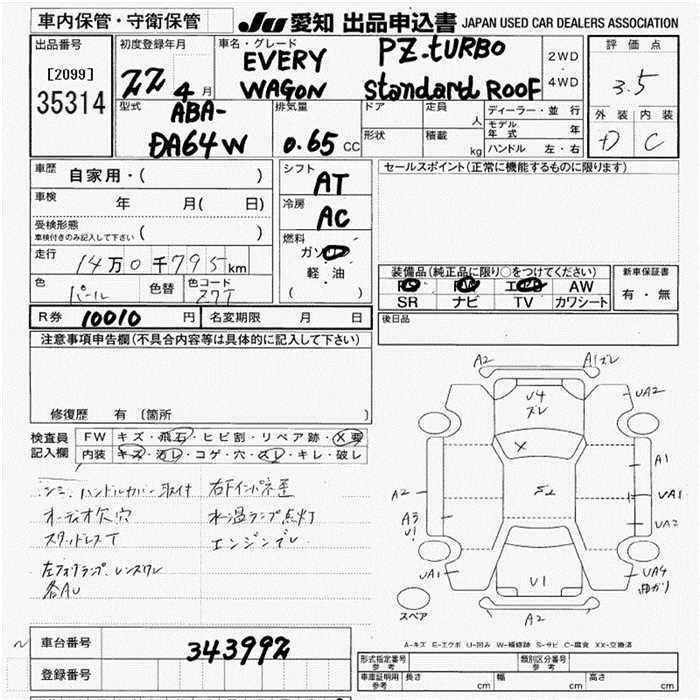 車内保管・守衛保管
JU 愛知 出品申込書 JAPAN USED CAR DEALERS ASSOCIATION
出品番号
[2099]
35314
初度登録年月
22 4 月
車名・グレード
EVERY WAGON
PZ-tURBO
Standard ROOF
2WD
・
4WD
評価点
3.5
外装 内装
D C
型式
ABA-
DA64W
排気量
0.65 CC
ドア
定員 人
形状
積載 kg
ディーラー・並行
モデル年式 年
ハンドル 左・右
車歴 自家用・( )
車検 年 月( 日)
受検形態
車検付きのみ記入して下さい ( )
走行 14万0千795km
色 パール
色替
色コード Z7T
シフト AT
冷房 AC
燃料
ガソリン
軽・油
( )
セールスポイント(正常に機能するものに限ります)
装備品(純正品に限り○をつけてください)
PS PW エアB AW
SR ナビ TV カワシート
新車保証書
有・無
R券 10010 円
名変期限 月 日
後日品
注意事項申告欄(不具合内容等は具体的に記入して下さい)
修復歴 有 〔箇所 〕
検査員記入欄
FW キズ・飛石・ヒビ割・リペア跡・X要
内装 キズ・汚レ・コゲ・穴・スレ・キレ・破レ
シミ、ハンドルカバー取付
オーディオ欠穴
スタッドレスT
左フォグランプ、レンズワレ
各AU
右下インパネ歪
水温ランプ点灯
エンジンブレ
A2
A1ズレ
U4
ズレ
UA2
X
A1
A2
UA1
A3
U1
UA2
UA1
U1
UA4
曲ガリ
A2
スペア
A-キズ E-エクボ U-凹み W-補修跡 S-サビ C-腐食 XX-交換済
車台番号 343992
登録番号
型式指定番号
参考
類別区分番号
参考
車庫証明用
参考
長さ cm
幅 cm
高さ cm